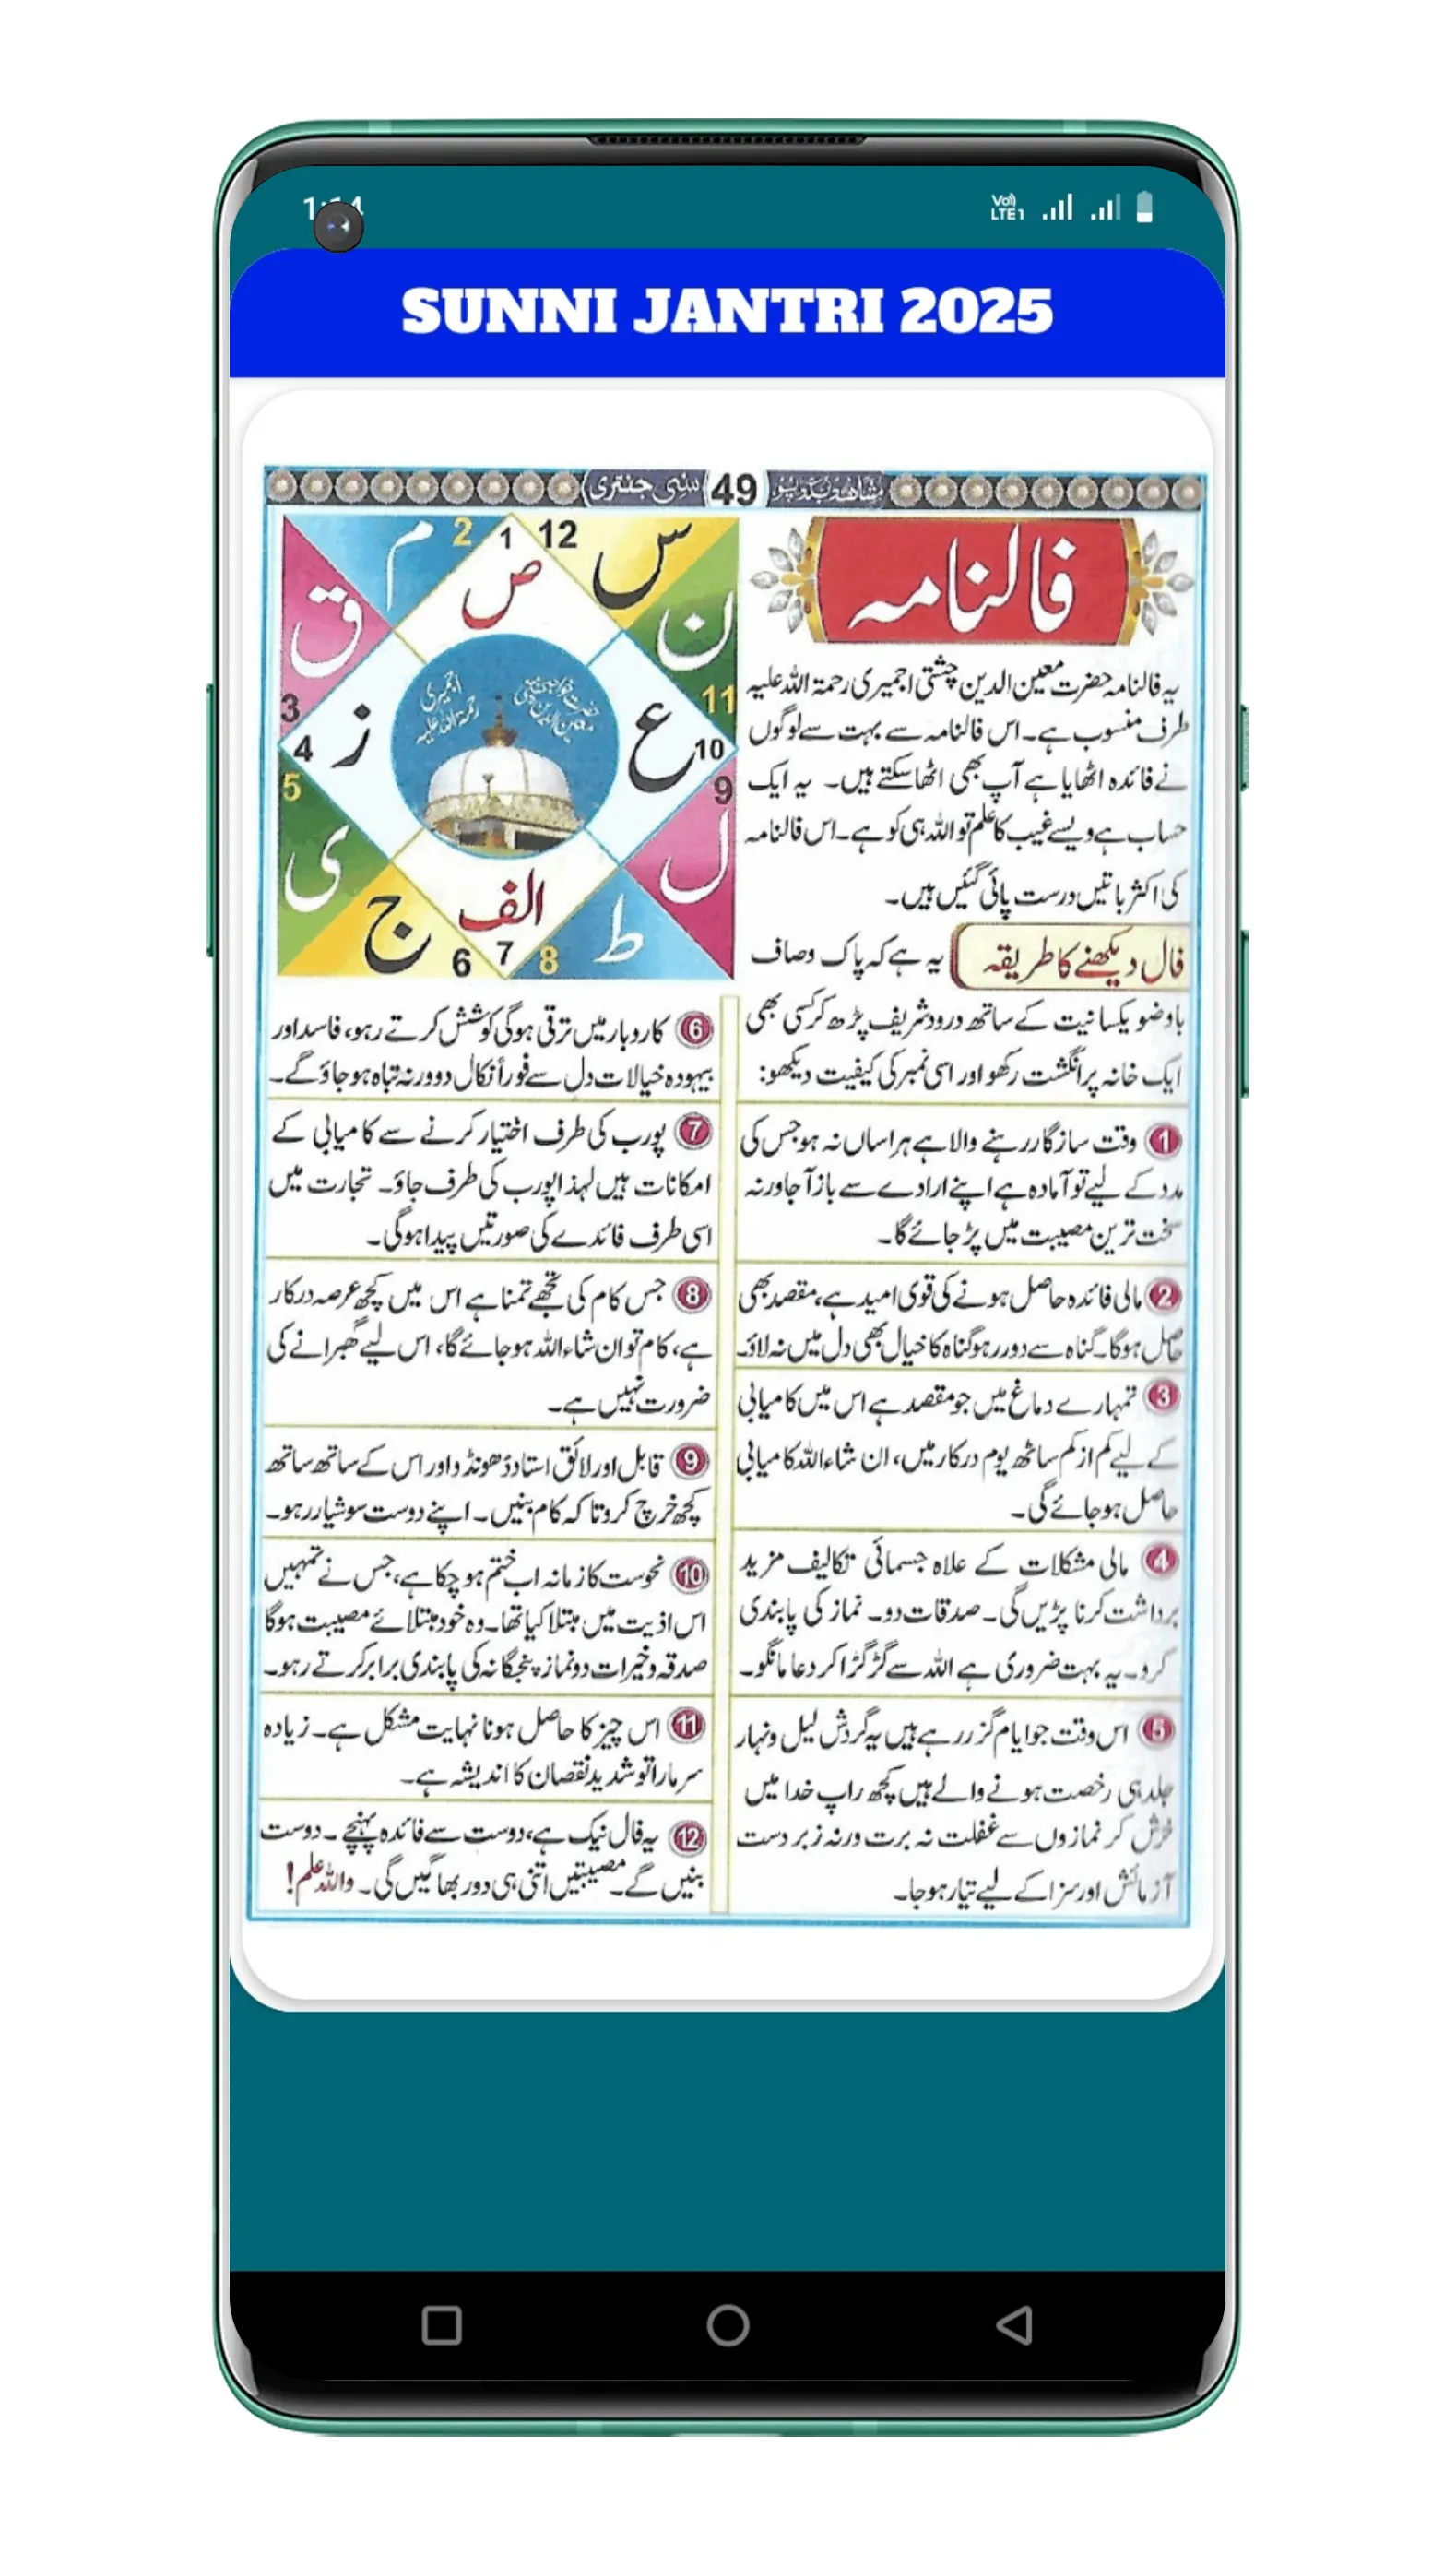 1:14
Vo)) LTE1
SUNNI JANTRI 2025
سُنّی جنتری
49
فالنامہ
1
12
2
3
4
5
6
7
8
9
10
11
ص
س
ن
ع
ل
ط
الف
ج
ی
ز
ق
م
یہ فالنامہ حضرت معین الدین چشتی اجمیری رحمۃ اللہ علیہ
طرف منسوب ہے۔ اس فالنامہ سے بہت سے لوگوں
نے فائدہ اٹھایا ہے آپ بھی اٹھا سکتے ہیں۔ یہ ایک
حساب ہے ویسے غیب کا علم تو اللہ ہی کو ہے۔ اس فالنامہ
کی اکثر باتیں درست پائی گئیں ہیں۔
فال دیکھنے کا طریقہ یہ ہے کہ پاک وصاف
باوضو یکسانیت کے ساتھ درود شریف پڑھ کر کسی بھی
ایک خانہ پر انگشت رکھو اور اسی نمبر کی کیفیت دیکھو:
1 وقت سازگار رہنے والا ہے ہراساں نہ ہو جس کی
مدد کے لیے تو آمادہ ہے اپنے ارادے سے باز آجا ورنہ
سخت ترین مصیبت میں پڑ جائے گا۔
2 مالی فائدہ حاصل ہونے کی قوی امید ہے، مقصد بھی
حاصل ہوگا۔ گناہ سے دور رہو گناہ کا خیال بھی دل میں نہ لاؤ۔
3 تمہارے دماغ میں جو مقصد ہے اس میں کامیابی
کے لیے کم از کم ساٹھ یوم درکار میں، ان شاءاللہ کامیابی
حاصل ہو جائے گی۔
4 مالی مشکلات کے علاہ جسمائی تکالیف مزید
برداشت کرنا پڑیں گی۔ صدقات دو۔ نماز کی پابندی
کرو۔ یہ بہت ضروری ہے اللہ سے گڑگڑا کر دعا مانگو۔
5 اس وقت جو ایام گزر رہے ہیں یہ گردش لیل ونہار
جلد ہی رخصت ہونے والے ہیں کچھ راہ خدا میں
خرش کر نمازوں سے غفلت نہ برت ورنہ زبردست
آزمائش اور سزا کے لیے تیار ہو جا۔
6 کاروبار میں ترقی ہوگی کوشش کرتے رہو، فاسد اور
بیہودہ خیالات دل سے فوراً نکال دو ورنہ تباہ ہو جاؤ گے۔
7 پورب کی طرف اختیار کرنے سے کامیابی کے
امکانات ہیں لہذا پورب کی طرف جاؤ۔ تجارت میں
اسی طرف فائدے کی صورتیں پیدا ہوگی۔
8 جس کام کی تجھے تمنا ہے اس میں کچھ عرصہ درکار
ہے، کام تو ان شاءاللہ ہو جائے گا، اس لیے گھبرانے کی
ضرورت نہیں ہے۔
9 قابل اور لائق استاد ڈھونڈو اور اس کے ساتھ ساتھ
کچھ خرچ کرو تا کہ کام بنیں۔ اپنے دوست سوشیار رہو۔
10 نحوست کا زمانہ اب ختم ہو چکا ہے، جس نے تمہیں
اس اذیت میں مبتلا کیا تھا۔ وہ خود مبتلائے مصیبت ہوگا
صدقہ وخیرات دو نماز پنجگانہ کی پابندی برابر کرتے رہو۔
11 اس چیز کا حاصل ہونا نہایت مشکل ہے۔ زیادہ
سر مارا تو شدید نقصان کا اندیشہ ہے۔
12 یہ فال نیک ہے، دوست سے فائدہ پہنچے۔ دوست
بنیں گے۔ مصیبتیں اتنی ہی دور بھاگیں گی۔ واللہ علم!